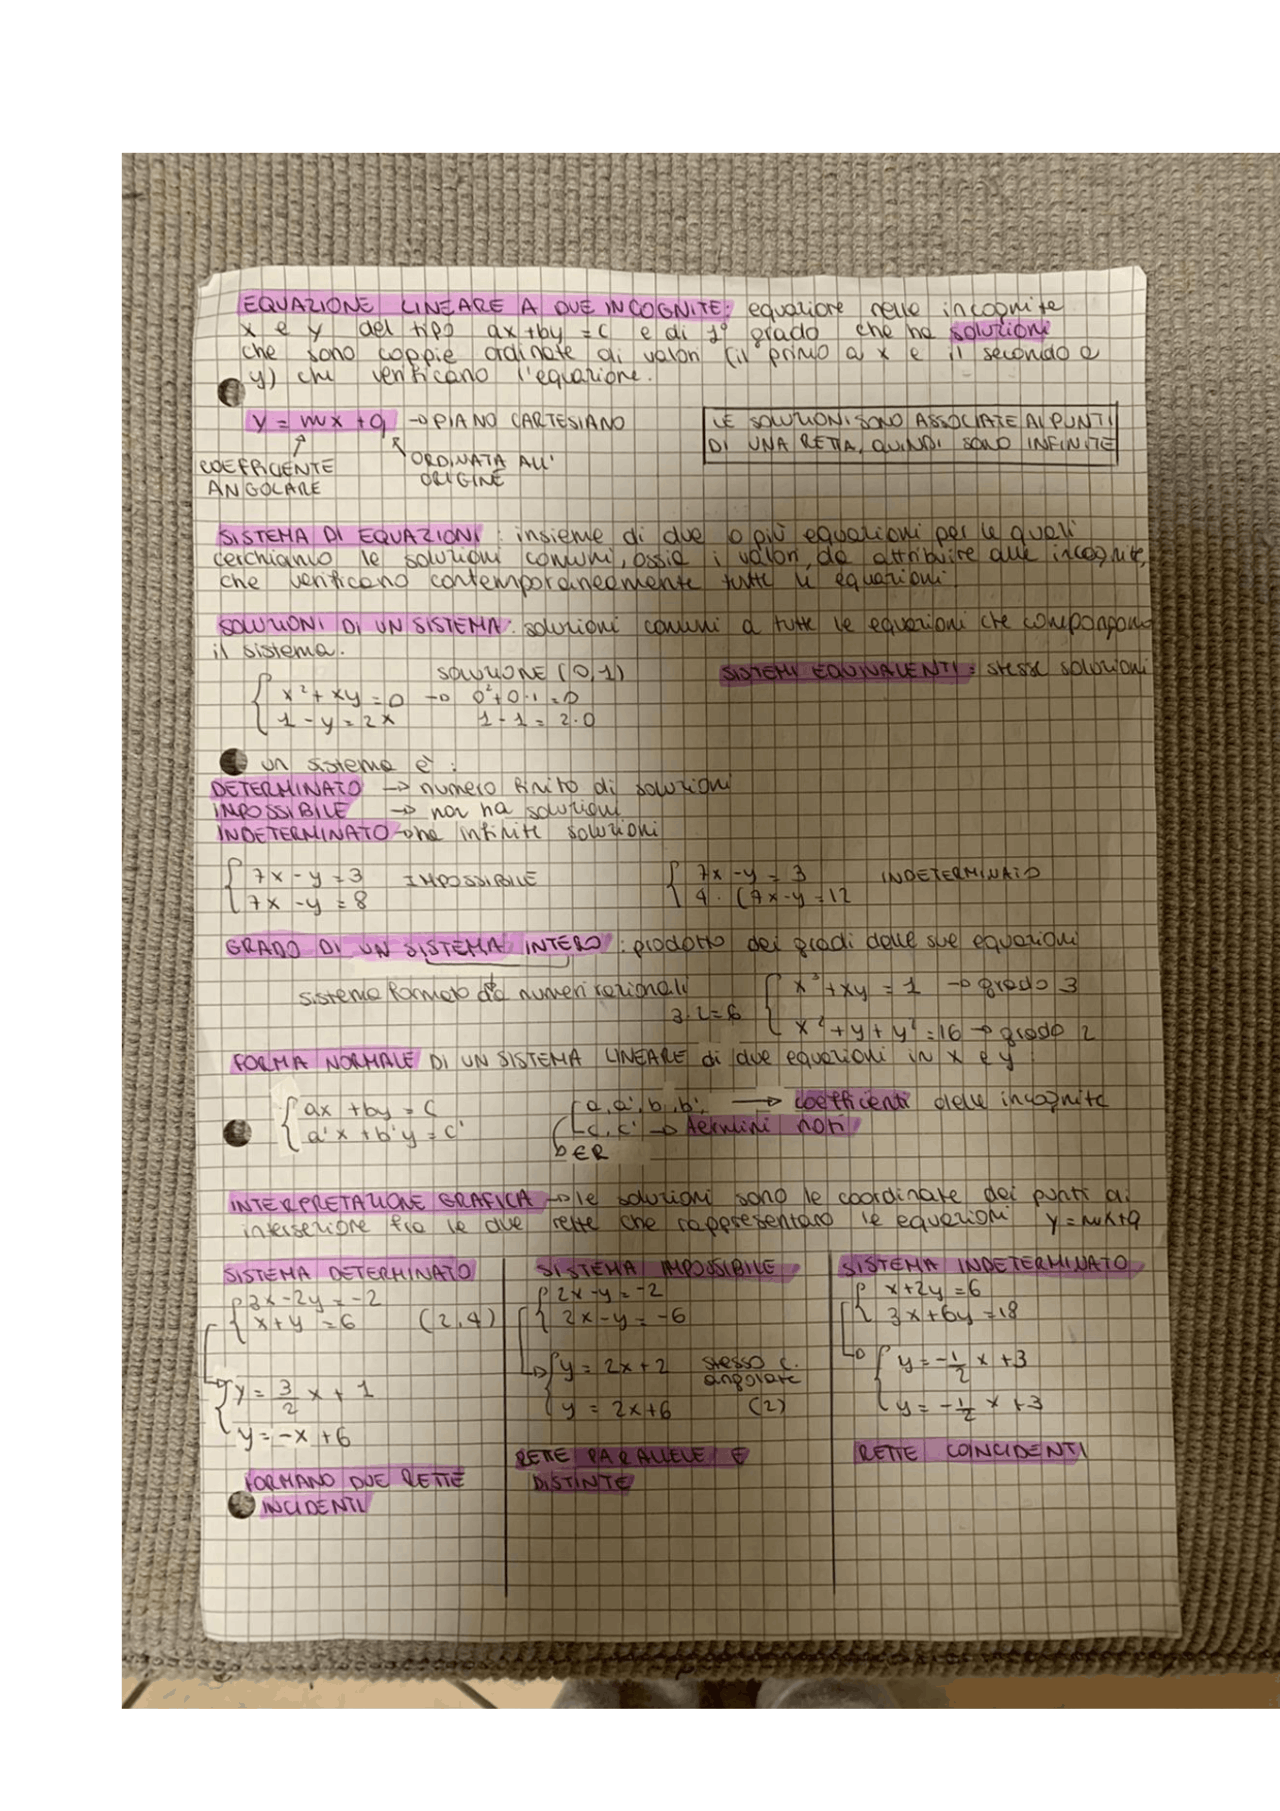 EQUAZIONE LINEARE A DUE INCOGNITE: equazione nelle incognite
x e y del tipo ax+by=c e di 1° grado che ha soluzioni
che sono coppie ordinate di valori (il primo a x e il secondo a
y) che verificano l'equazione.
y = mx + q → PIANO CARTESIANO
COEFFICIENTE
ANGOLARE
ORDINATA ALL'
ORIGINE
LE SOLUZIONI SONO ASSOCIATE AI PUNTI
DI UNA RETTA, QUINDI SONO INFINITE
SISTEMA DI EQUAZIONI: insieme di due o più equazioni per le quali
cerchiamo le soluzioni comuni, ossia i valori, da attribuire alle incognite,
che verificano contemporaneamente tutte le equazioni.
SOLUZIONI DI UN SISTEMA: soluzioni comuni a tutte le equazioni che compongono
il sistema.
SOLUZIONE (0,1)
x²+xy=0 → 0²+0·1=0
1-y=2x 1-1=2·0
SISTEMI EQUIVALENTI: stesse soluzioni
un sistema è:
DETERMINATO → numero finito di soluzioni
IMPOSSIBILE → non ha soluzioni
INDETERMINATO → ha infinite soluzioni
7x-y=3 IMPOSSIBILE
7x-y=8
7x-y=3 INDETERMINATO
4·(7x-y=12
GRADO DI UN SISTEMA INTERO: prodotto dei gradi delle sue equazioni
sistema formato da numeri razionali
3·2=6
x³+xy=1 → grado 3
x²+y+y²=16 → grado 2
FORMA NORMALE DI UN SISTEMA LINEARE di due equazioni in x e y
ax+by=c
a'x+b'y=c'
a, a', b, b', → coefficienti delle incognite
c, c' → termini noti
b∈R
INTERPRETAZIONE GRAFICA → le soluzioni sono le coordinate dei punti di
intersezione fra le due rette che rappresentano le equazioni y=mx+q
SISTEMA DETERMINATO
3x-2y=-2
x+y=6 (2,4)
y=3/2x+1
y=-x+6
FORMANO DUE RETTE
INCIDENTI
SISTEMA IMPOSSIBILE
2x-y=-2
2x-y=-6
y=2x+2 stesso c.
angolare
y=2x+6 (2)
RETTE PARALLELE E
DISTINTE
SISTEMA INDETERMINATO
x+2y=6
3x+6y=18
y=-1/2x+3
y=-1/2x+3
RETTE COINCIDENTI